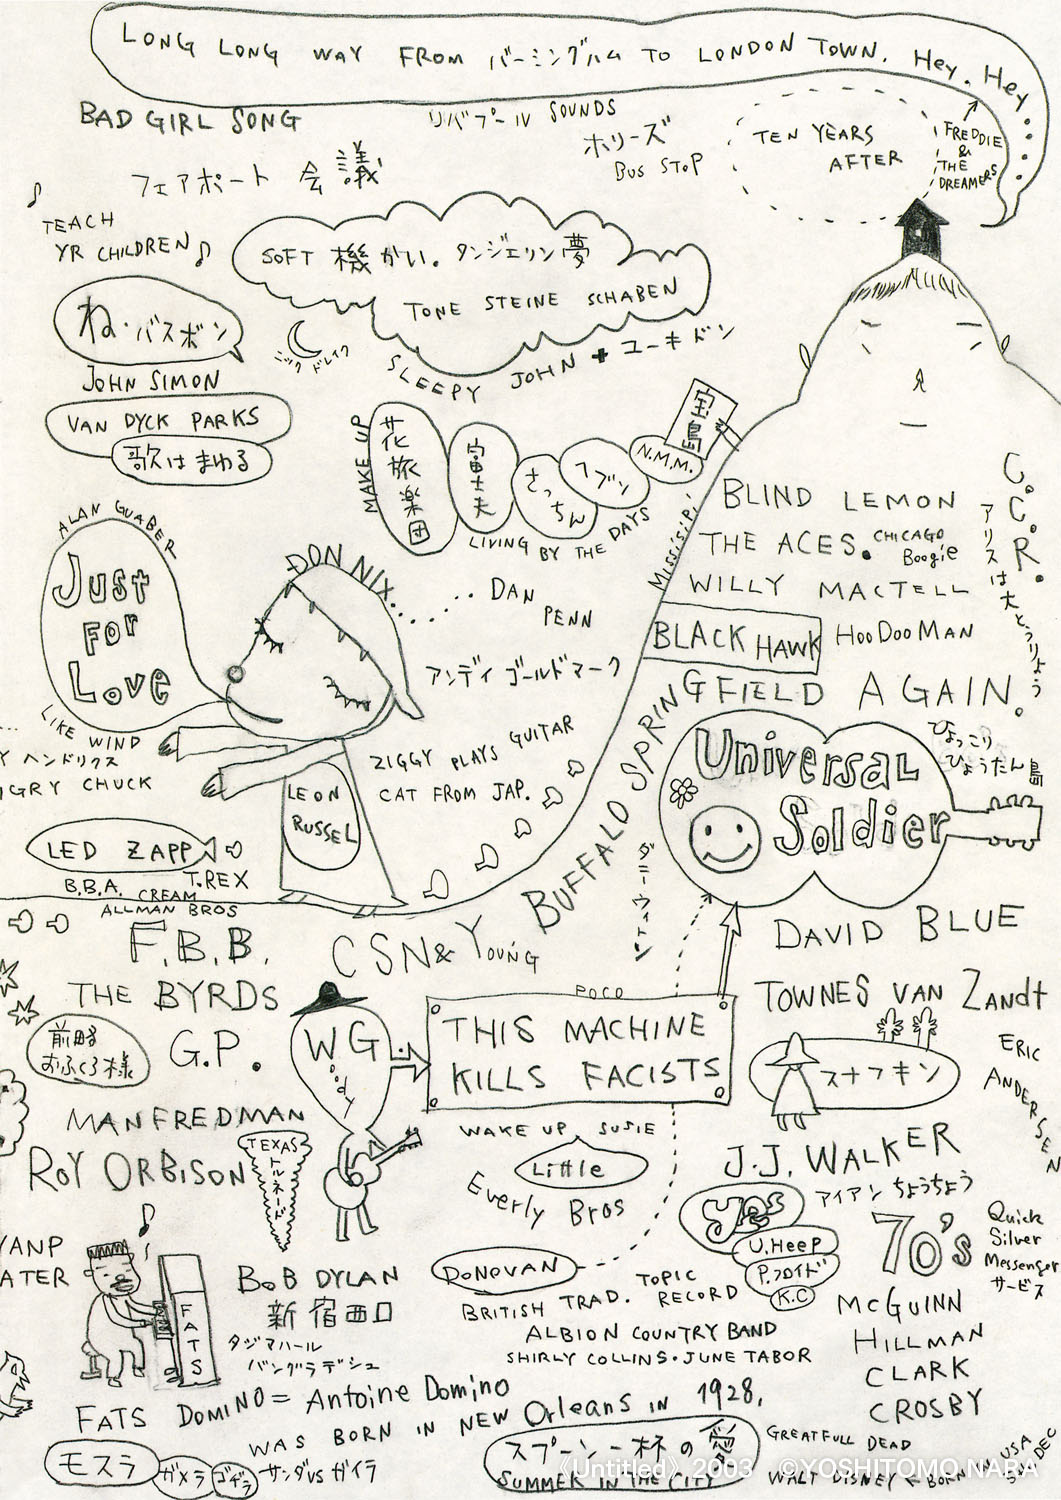 LONG LONG WAY FROM バーミングハム TO LONDON TOWN. Hey. Hey....
BAD GIRL SONG
リバプール SOUNDS
ホリーズ
BUS STOP
TEN YEARS
AFTER
FREDDIE
&
THE
DREAMERS
フェアポート 会議
TEACH
YR CHILDREN
SOFT 機かい。タンジェリン夢
TONE STEINE SCHABEN
ね・バスボン
ニック ドレイク
SLEEPY JOHN + ユーキドン
JOHN SIMON
VAN DYCK PARKS
歌はまわる
MAKE UP
花旅楽団
富士夫
さっちん
ヘブン
N.M.M.
宝島
LIVING BY THE DAYS
Missisipi
BLIND LEMON
THE ACES. CHICAGO
Boogie
WILLY MACTELL
BLACK HAWK
HOODOO MAN
C.C.R.
アリスは大とうりょう
ALAN GUABER
Just
FOR
Love
DON NIX........ DAN
PENN
アンディ ゴールドマーク
LIKE WIND
ヘンドリクス
GRY CHUCK
ZIGGY PLAYS GUITAR
CAT FROM JAP.
LEON
RUSSEL
BUFFALO SPRINGFIELD AGAIN.
UNIVERSAL
Soldier
ひょっこり
ひょうたん島
LED ZAPP
T.REX
B.B.A. CREAM
ALLMAN BROS
F.B.B.
CSN& YOUNG
THE BYRDS
G.P.
前略
おふくろ様
DAVID BLUE
TOWNES VAN ZANDt
ERIC
ANDERSEN
スナフキン
POCO
WG
Woody
THIS MACHINE
KILLS FACISTS
MANFREDMAN
ROY ORBISON
TEXAS
トルネード
WAKE UP SUSIE
Little
Everly Bros
J.J. WALKER
アイアン ちょうちょう
yes
U.HeeP
P.フロイド
K.C
70's
Quick
Silver
Messenger
サービス
DONOVAN
TOPIC
RECORD
BRITISH TRAD.
ALBION COUNTRY BAND
SHIRLY COLLINS・JUNE TABOR
McGUINN
HILLMAN
CLARK
CROSBY
YANP
ATER
FATS
BOB DYLAN
新宿西口
タジマハール
バングラデシュ
FATS DOMINO = Antoine Domino
WAS BORN IN NEW Orleans IN 1928,
モスラ
ガメラ
ゴヂラ
サンダ VS ガイラ
スプーン一杯の愛
SUMMER IN THE CITY
GREATFULL DEAD
WALT DISNEY ← BORN IN USA
5th DEC
《Untitled》 2003 ©YOSHITOMO NARA